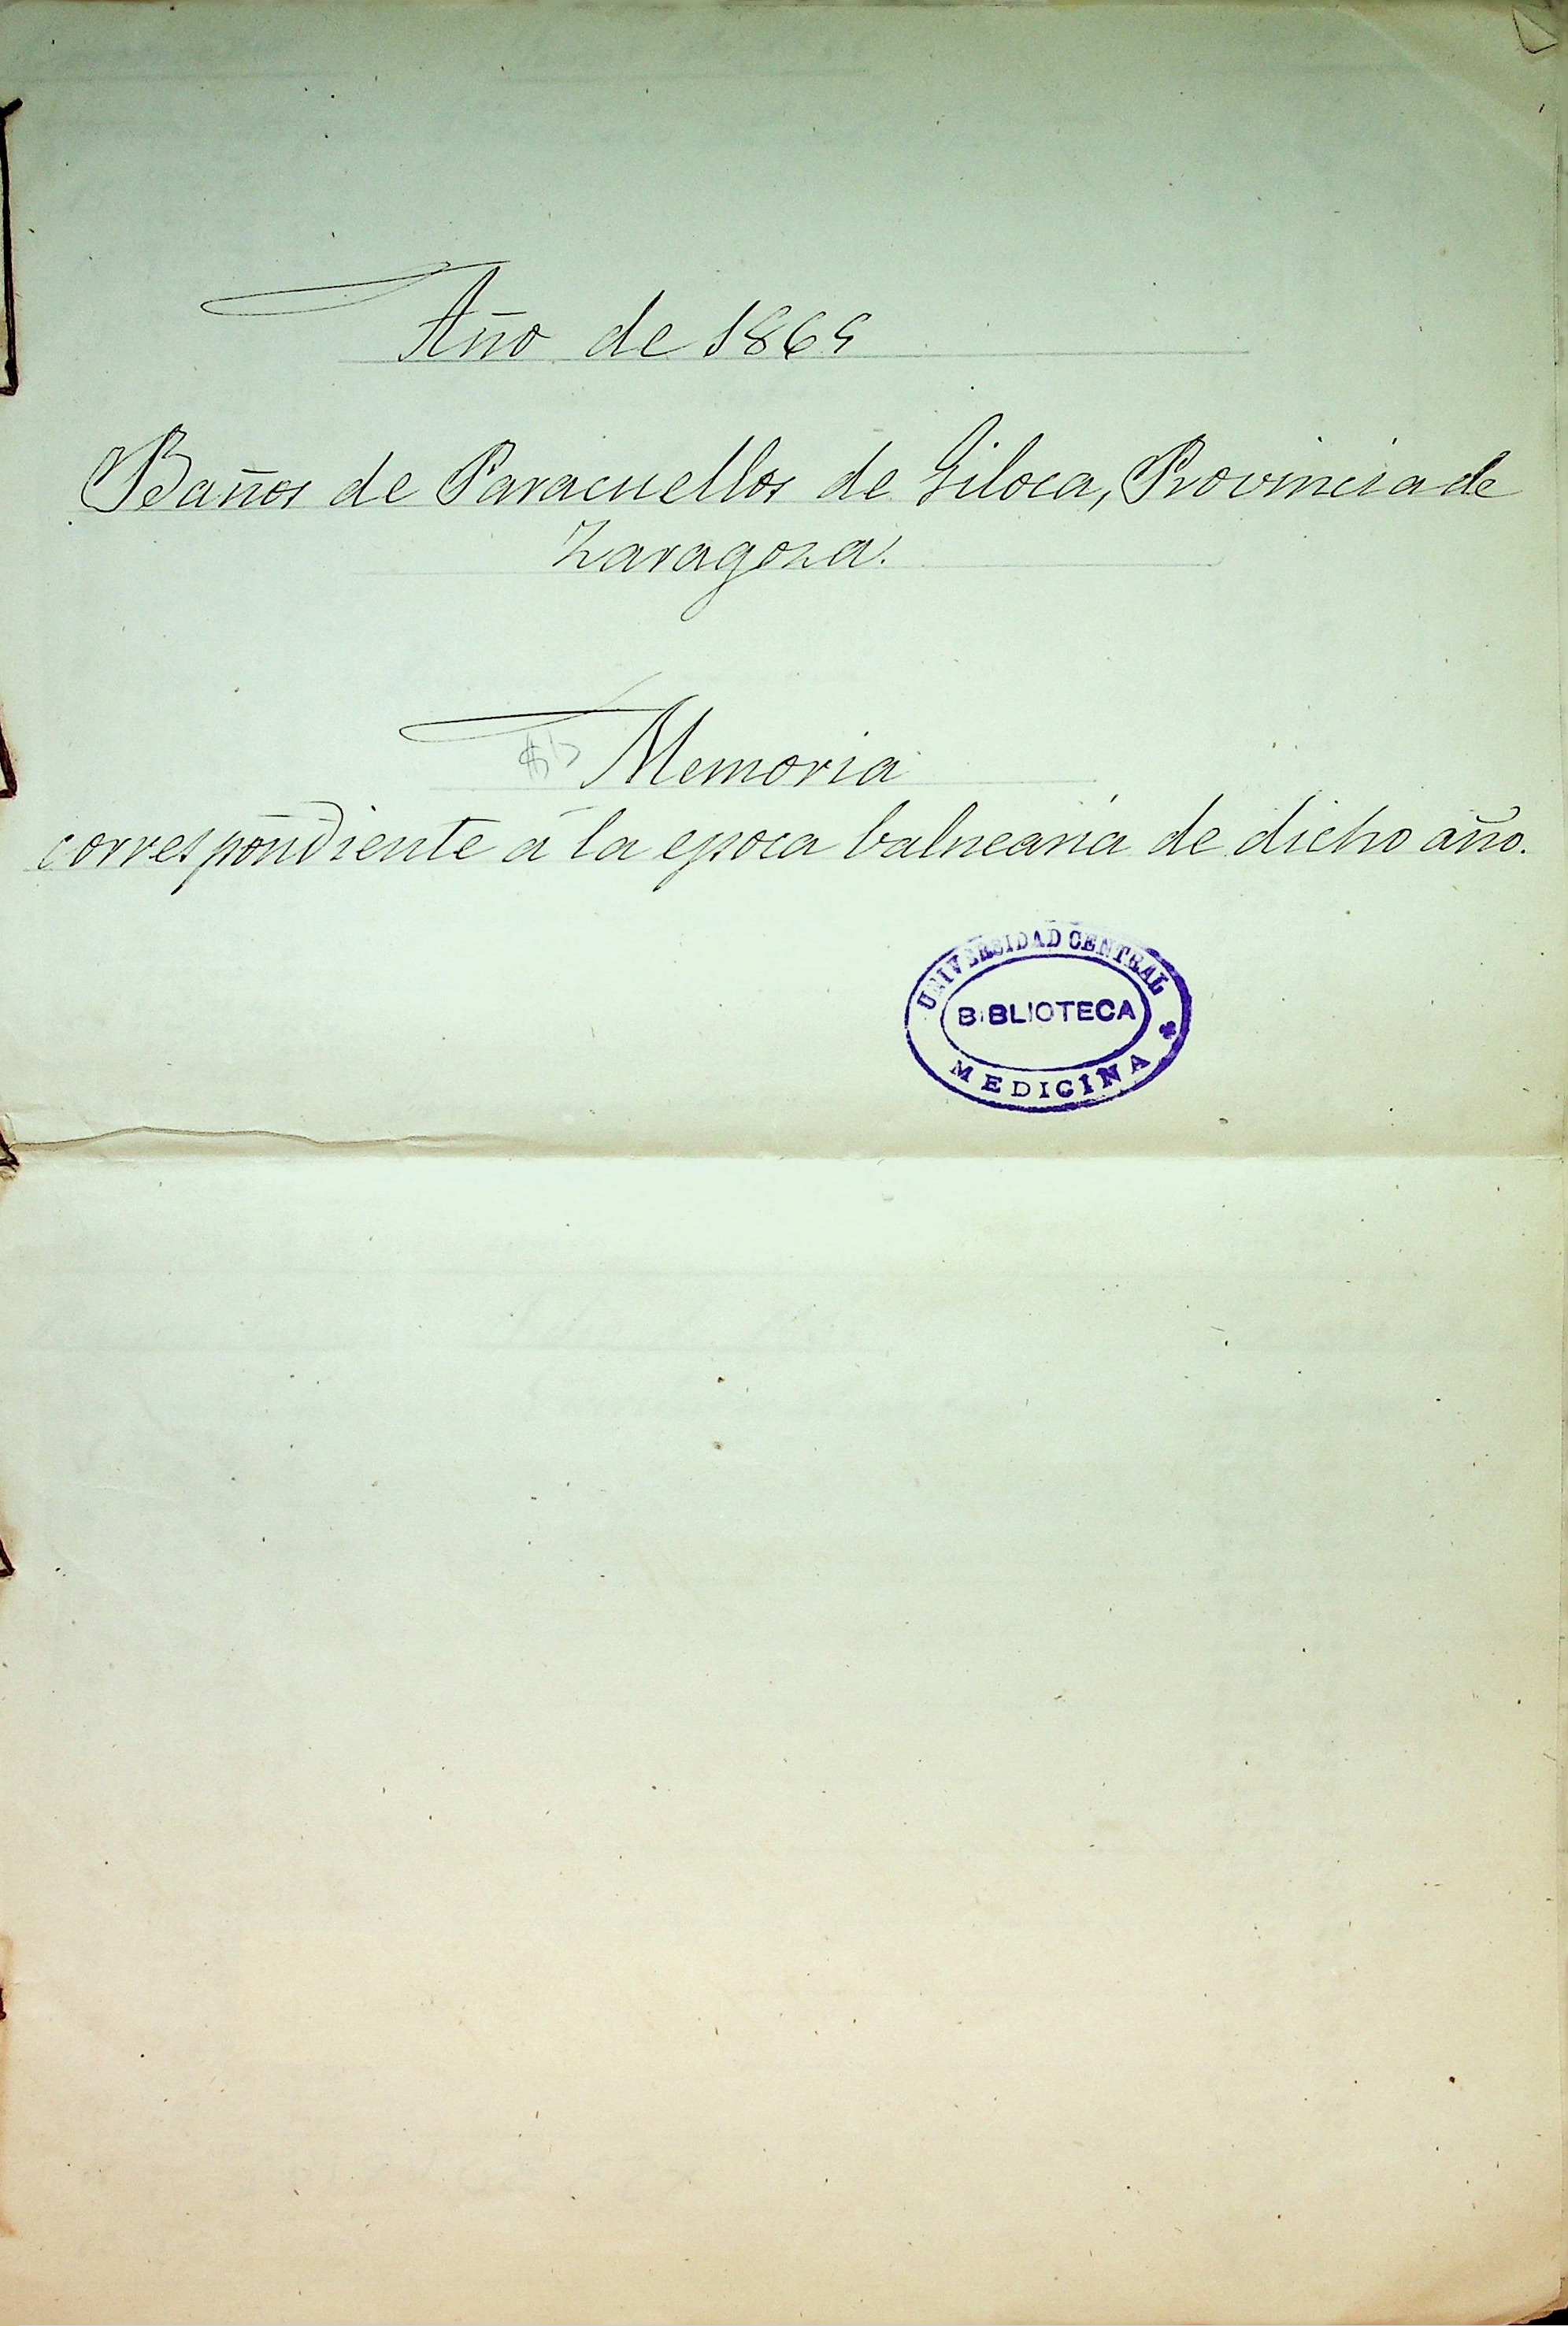 Año de 1869
Baños de Paracuellos de Giloca, Provincia de
Zaragoza.
Memoria
correspondiente á la epoca balnearia de dicho año.
UNIVERSIDAD CENTRAL
BIBLIOTECA
MEDICINA